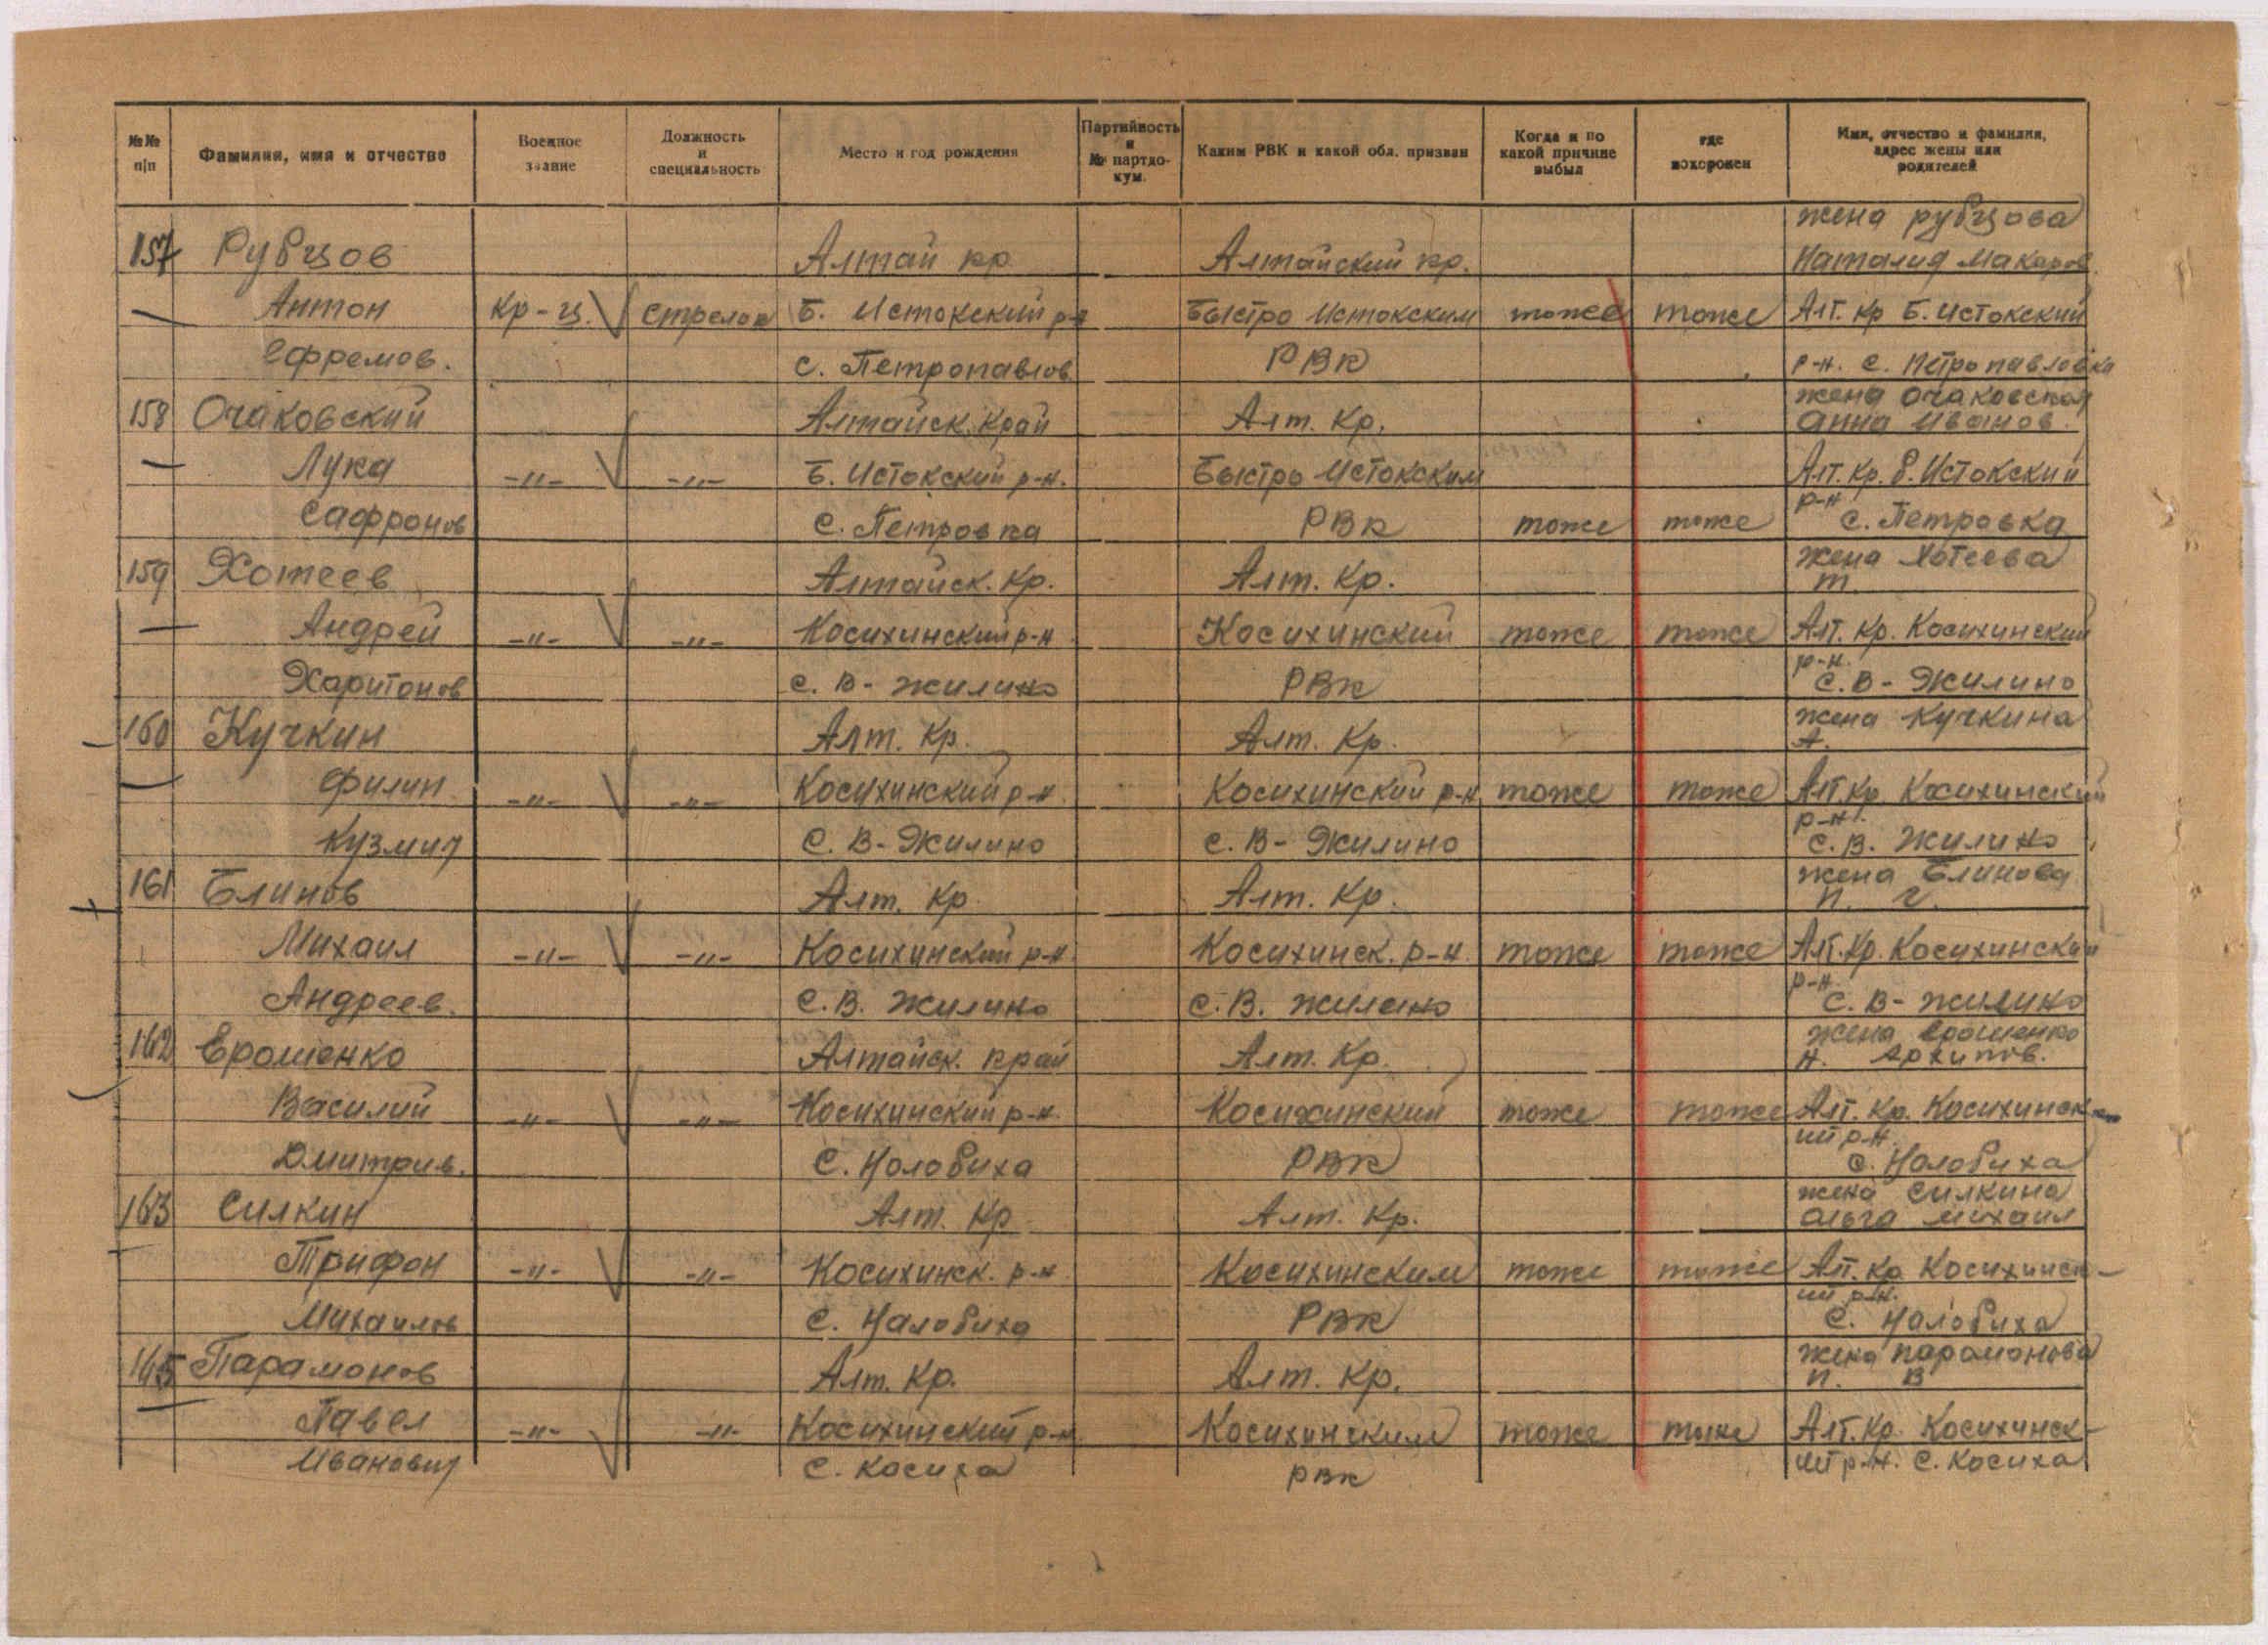 №№ п|п Фамилия, имя и отчество Военное звание Должность и специальность Место и год рождения Партийность и № партдокум. Каким РВК и какой обл. призван Когда и по какой причине выбыл где похоронен Имя, отчество и фамилия, адрес жены или родителей
жена рубцова
157 Рубцов Алтай кр Алтайский кр. Наталия Макаров.
Антон Кр-ц. стрелок Б. Истокский р-н Быстро Истокским тоже тоже Алт. кр Б. Истокский
Ефремов. с. Петропавлов. РВК р-н. с. Петропавловка
жена Очаковская
158 Очаковский Алтайск. Край Алт. Кр. Анна Иванов.
Лука -"- -"- Б. Истокский р-н. Быстро Истокским Алт. Кр. б. Истокский
Сафронов с. Петровка РВК тоже тоже р-н с. Петровка
жена Хотеева
159 Хотеев Алтайск. Кр. Алт. Кр. т.
Андрей -"- -"- Косихинский р-н Косихинский тоже тоже Алт. Кр. Косихинский
Харитонов с. В-Жилино РВК р-н. с. В-Жилино
жена Кучкина
160 Кучкин Алт. Кр. Алт. Кр. А.
Филип -"- -"- Косихинский р-н Косихинский р-н тоже тоже Алт. Кр. Косихинский
Кузмич с. В-Жилино с. В-Жилино р-н. с. В. Жилино
жена Блинова
161 Блинов Алт. Кр Алт. Кр. П. Г.
Михаил -"- -"- Косихинский р-н Косихинск. р-н. тоже тоже Алт. Кр. Косихинский
Андреев. с. В. Жилино с. В. Жилино р-н. с. В-Жилино
жена Ерошенко
162 Ерошенко Алтайск. край Алт. Кр. Н. Архипов.
Василий -"- -"- Косихинский р-н. Косихинский тоже тоже Алт. Кр. Косихинск-
Дмитрив. с. Налобиха РВК ий р-н. с. Налобиха
жена Силкина
163 Силкин Алт. Кр Алт. Кр. Ольга Михаил
Трифон -"- -"- Косихинск. р-н Косихинским тоже тоже Алт. Кр Косихинск-
Михаилов с. Налобиха РВК ий р-н. с. Налобиха
жена Парамонова
165 Парамонов Алт. Кр. Алт. Кр. П. В
Павел -"- -"- Косихинский р-н Косихинским тоже тоже Алт. Кр. Косихинск-
Иванович с. Косиха РВК ий р-н. с. Косиха